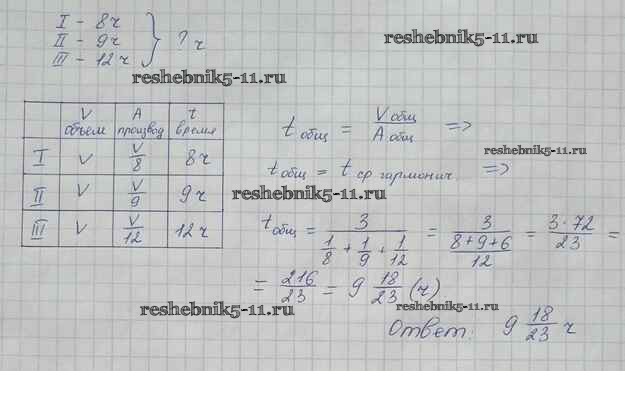 I - 8ч
II - 9ч } ? ч
III - 12 ч
reshebnik5-11.ru
reshebnik5-11.ru
V объем | A производ | t время
I | V | V/8 | 8ч
II | V | V/9 | 9ч
III | V | V/12 | 12ч
t общ = V общ / A общ =>
reshebnik5-11.ru
t общ = t ср гармонич. =>
reshebnik5-11.ru
t общ = 3 / (1/8 + 1/9 + 1/12) = 3 / ((8+9+6)/12) = 3·72/23 =
= 216/23 = 9 18/23 (ч)
reshebnik5-11.ru
reshebnik5-11.ru
Ответ: 9 18/23 ч